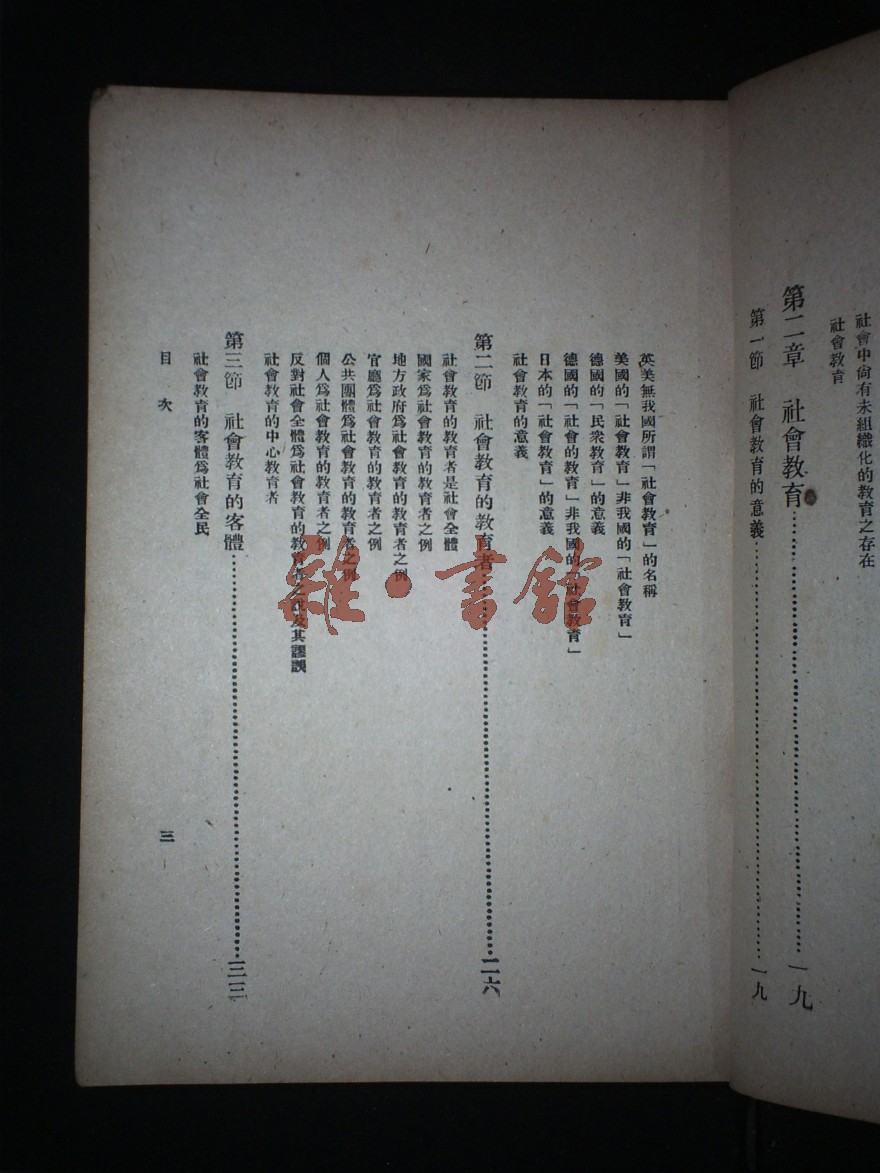 社會中尙有未組織化的敎育之存在
社會敎育
第二章 社會敎育……一九
第一節 社會敎育的意義……一九
英美無我國所謂「社會敎育」的名稱
美國的「社會敎育」非我國的「社會敎育」
德國的「民衆敎育」的意義
德國的「社會的敎育」非我國的「社會敎育」
日本的「社會敎育」的意義
社會敎育的意義
第二節 社會敎育的敎育者……二六
社會敎育的敎育者是社會全體
國家爲社會敎育的敎育者之例
地方政府爲社會敎育的敎育者之例
官廳爲社會敎育的敎育者之例
公共團體爲社會敎育的敎育者之例
個人爲社會敎育的敎育者之例
反對社會全體爲社會敎育的敎育者之說及其謬誤
社會敎育的中心敎育者
第三節 社會敎育的客體……三三
社會敎育的客體爲社會全民
目 次
三
雜·書館